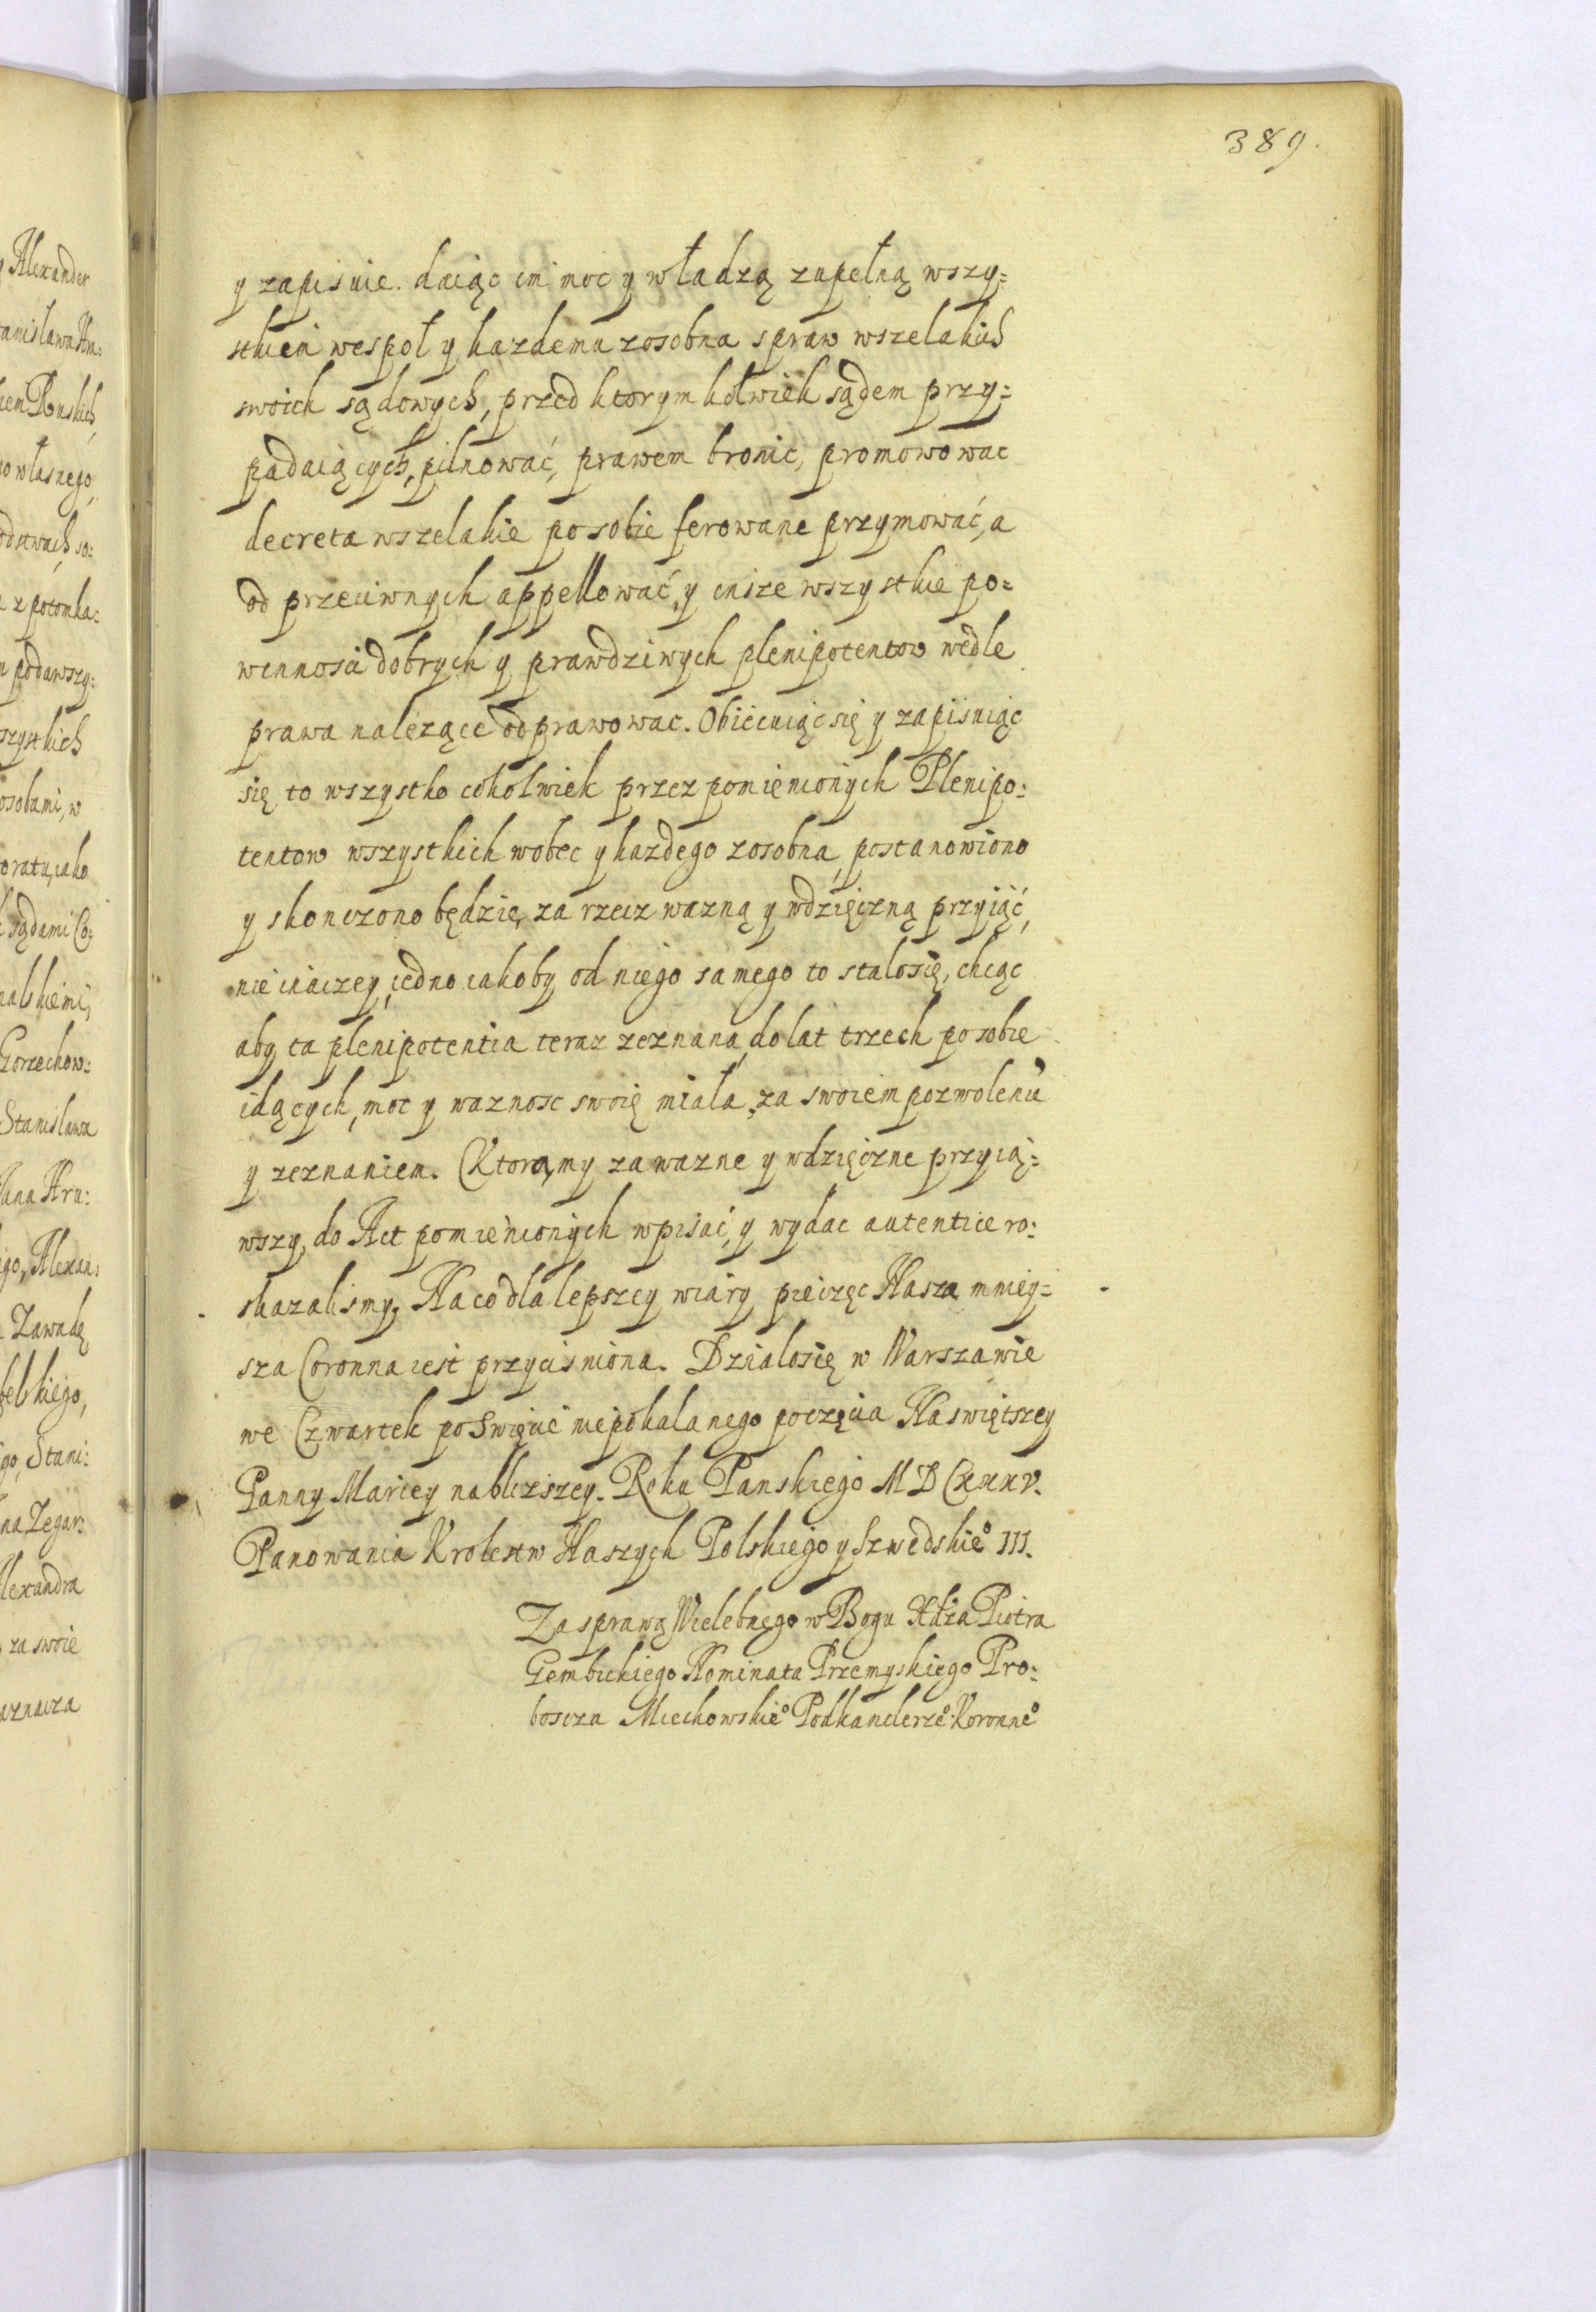 389.
y zapisuie. daiąc im moc y władzą zupełną wszy=
stkiem wespoł y kazdemu zosobna spraw wszelakich
swoich sądowych, przed ktorymkolwiek sądem przy=
padaiących, pilnować, prawem bronic, promowowac
decreta wszelakie po sobie ferowane przymować, a
od przeciwnych appellować, y insze wszystkie po=
winnosci dobrych y prawdziwych plenipotentow wedle
prawa nalezące odprawowac. Obiecuiąc się y zapisuiąc
się to wszystko cokolwiek przez pomienionych Plenipo=
tentow wszystkich wobec y kazdego zosobna, postanowiono
y skonczono będzie, za rzecz wazną y wdzięczną przyiąć,
nie inaczey, iedno iakoby od niego samego to stalosię, chcąc
aby ta plenipotentia teraz zeznana, do lat trzech po sobie
idących, moc y waznosc swoię miała, za swoiem pozwoleniē
y zeznaniem. Ktorą my za wazne y wdzięczne przyią=
wszy, do Act pomienionych wpisać, y wydac autentice ro=
skazalismy. Na co dla lepszey wiary pieczęc Nasza mniey=
sza Coronna iest przycisniona. Działosię w Warszawie
we Czwartek po Swięcie niepokalanego poczęcia Naswiętszey
Panny Mariey nablizszey. Roku Panskiego MDCXXXV.
Panowania Krolestw Naszych Polskiego y Szwedskie° III.
Za sprawą Wielebnego w Bogu Xdza Piotra
Gembickiego Nominata Przemyskiego Pro=
boscza Miechowskie° Podkanclerze° Koronne°
Alexander
anisława Hra=
iem Ronskich,
o własnego,
z potomka=
podawszy=
szystkich
osobami, w
oratu, iako
sądami Co=
nalskiemi,
Gorzechow=
Stanisława
Jana Hra=
igo, Alexan=
Zawadę
belskiego,
igo, Stani=
na Zegar=
lexandra
za swoie
uznacza